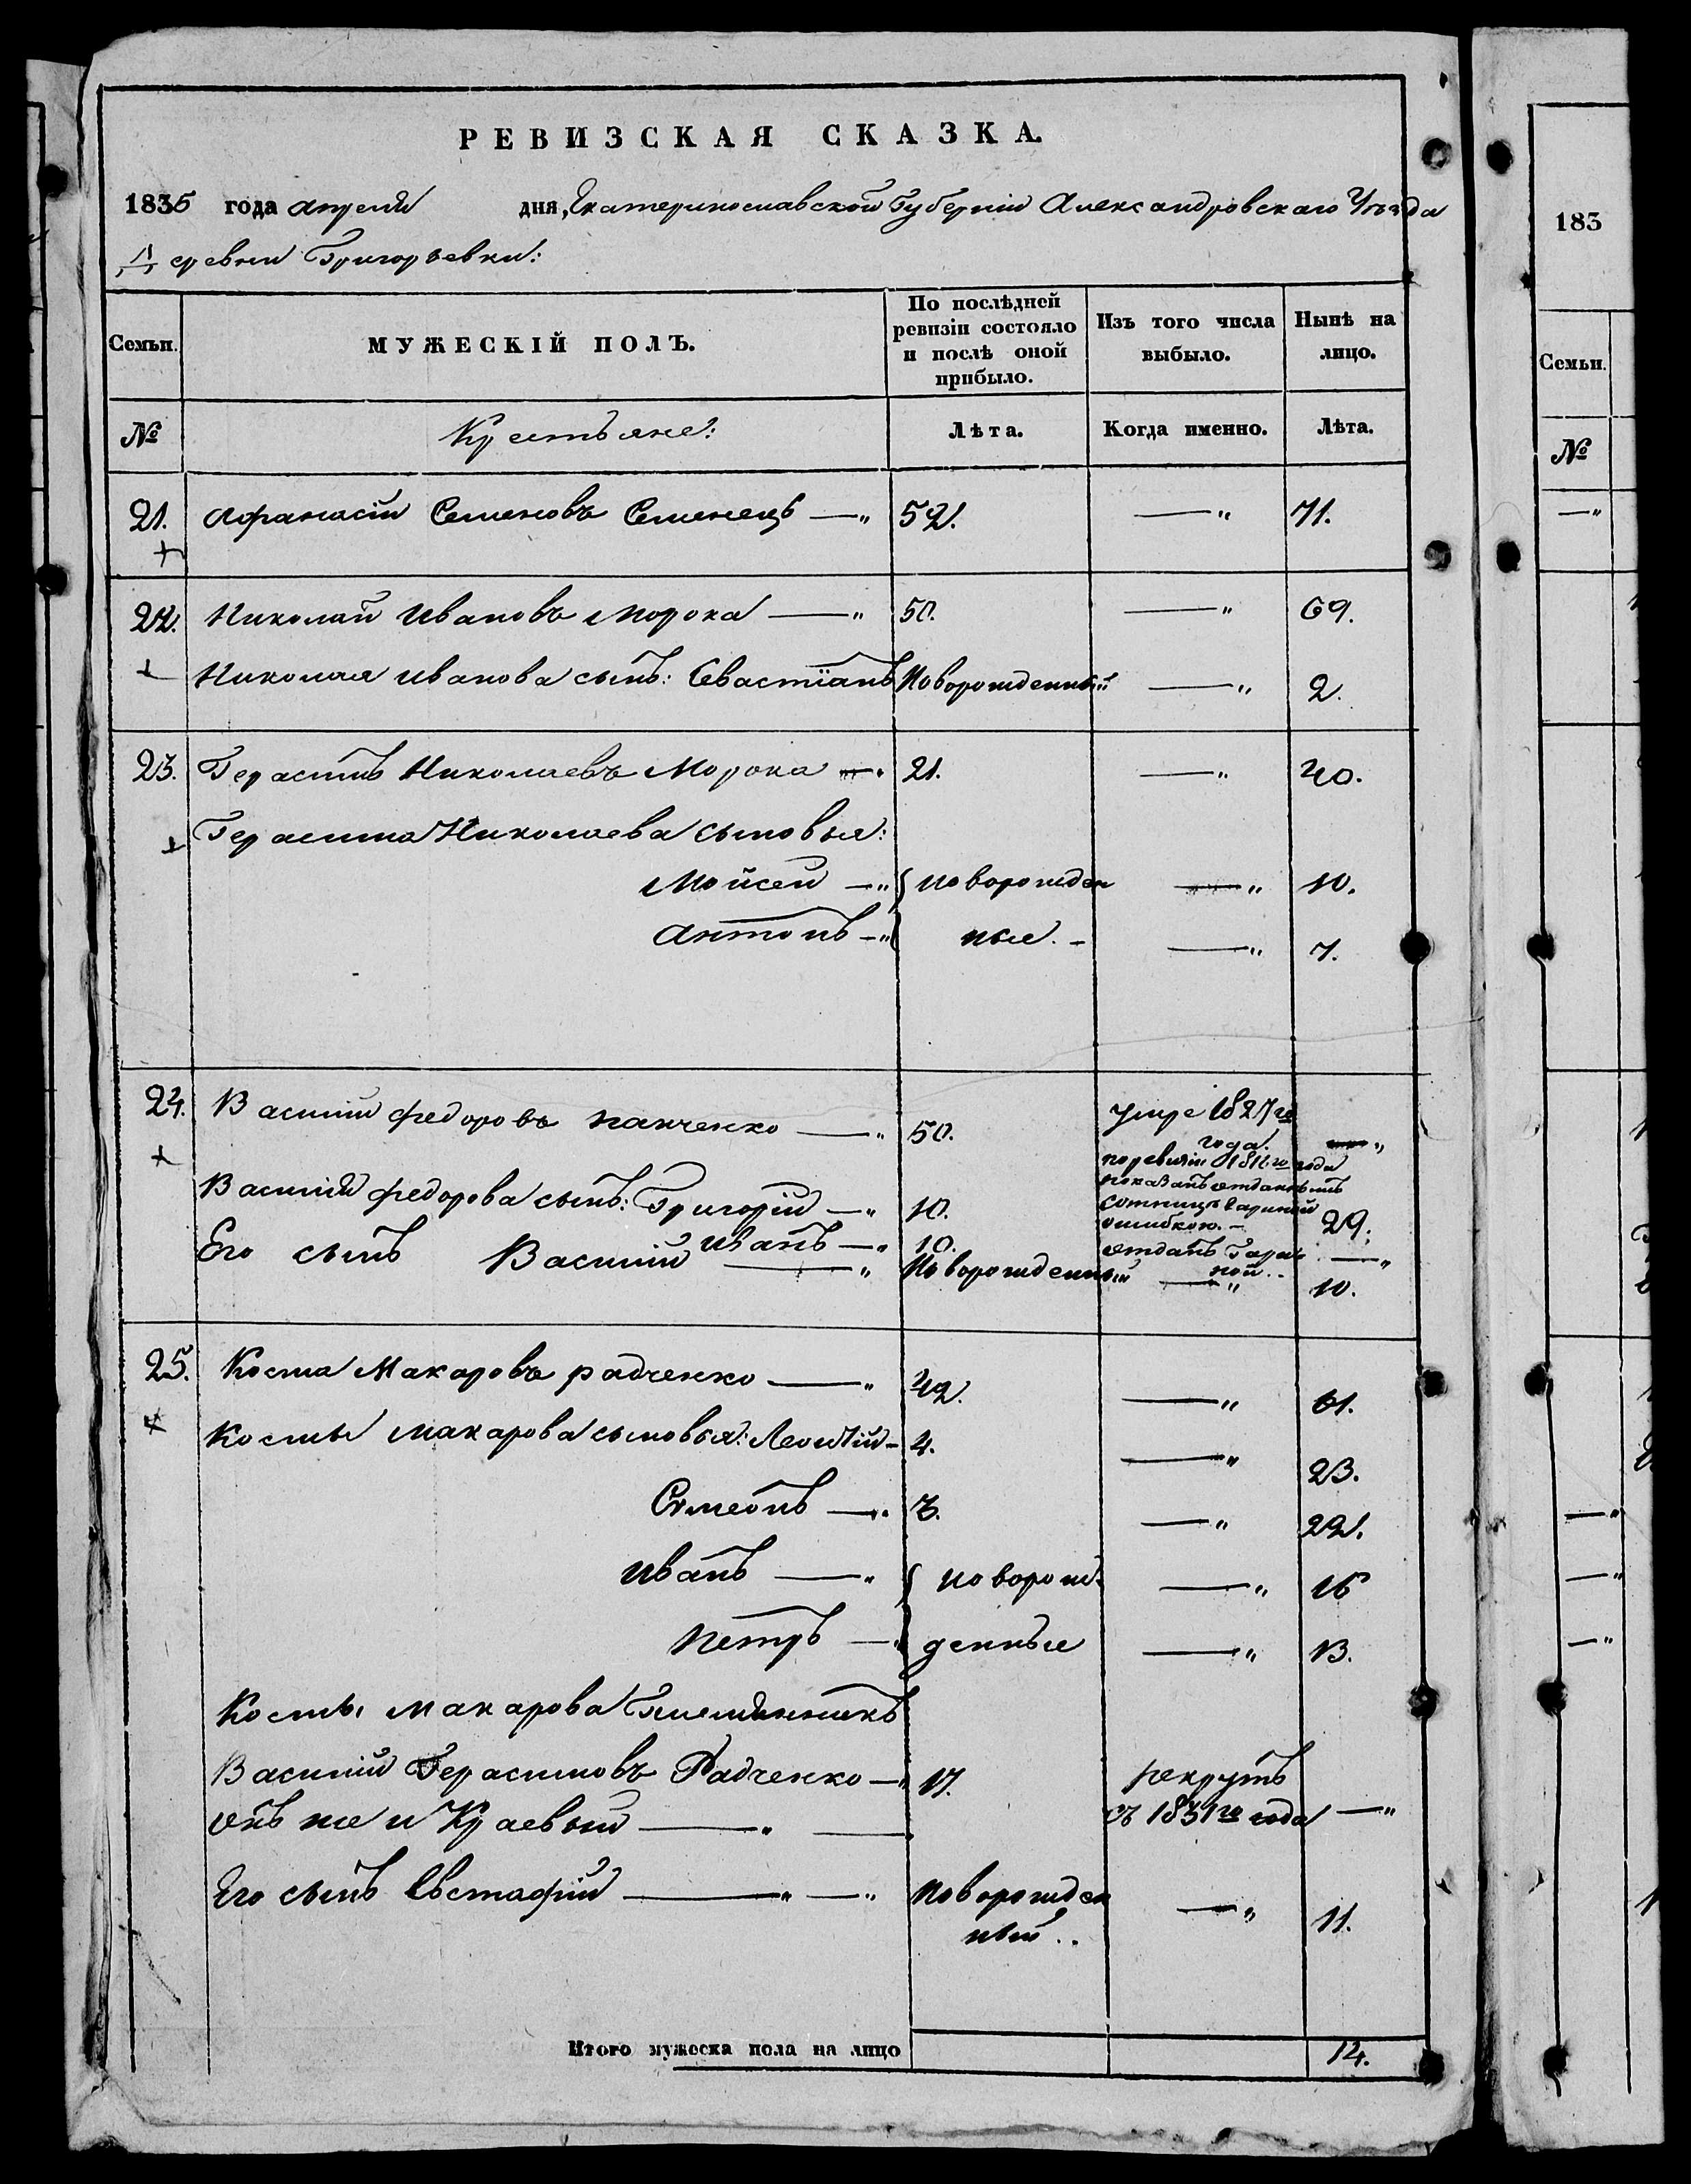 РЕВИЗСКАЯ СКАЗКА.
1835 года апреля дня, Екатеринославской Губернии Александровскаго Уезда
Деревни Григорьевки:
Семьи. МУЖЕСКІЙ ПОЛЪ. По послѣдней ревизіи состояло и послѣ оной прибыло. Изъ того числа выбыло. Нынѣ на лицо.
№ Крестьяне: Лѣта. Когда именно. Лѣта.
21. Афанасій Семеновъ Семенецъ —„ 52. —„ 71.
22. Николай Ивановъ Морока —„ 50. —„ 69.
Николая Иванова сынъ: Севастіанъ Новорожденный —„ 2.
23. Герасимъ Николаевъ Морока —„ 21. —„ 40.
Герасима Николаева сыновья:
Мойсей —„ новорожден —„ 10.
Антонъ —„ ные. – —„ 7.
24. Василій Федоровъ Панченко —„ 50. умре 1827го года. —„
Василія Федорова сынъ: Григорій —„ 10. по ревизіи 1816го года показанъ отданнымъ ошибкою. – 29.
Иванъ —„ 10. отданъ —„
Его сынъ Василий —„ Новорожденный —„ 10.
25. Косма Макаровъ Радченко —„ 42. —„ 61.
Космы Макарова сыновья: Леонтій – 4. —„ 23.
Симеонъ —„ 3. —„ 22.
Иванъ —„ новорож- —„ 16
Петръ —„ денные —„ 13.
Космы Макарова Племянникъ
Василий Герасимовъ Радченко —„ 17. рекрутъ
онъ же и Краевый —„ — съ 1831го года —„
Его сынъ Евстафій —„ —„ Новорожден —„ 11.
ный..
Итого мужеска пола на лицо 14.
183
Семьи.
№